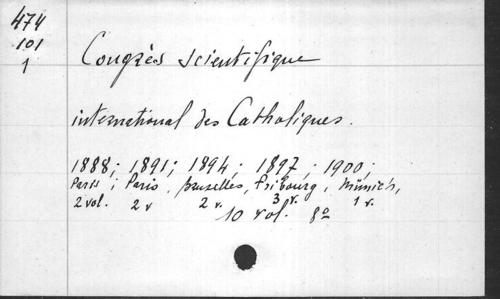 474
101
1
Congrès scientifique
international des Catholiques.
1888; 1891; 1894; 1897; 1900;
Paris; Paris, Bruxelles, Fribourg, Münich,
2 vol. 2 v 2 v. 3 v. 1 v.
10 vol. 8º